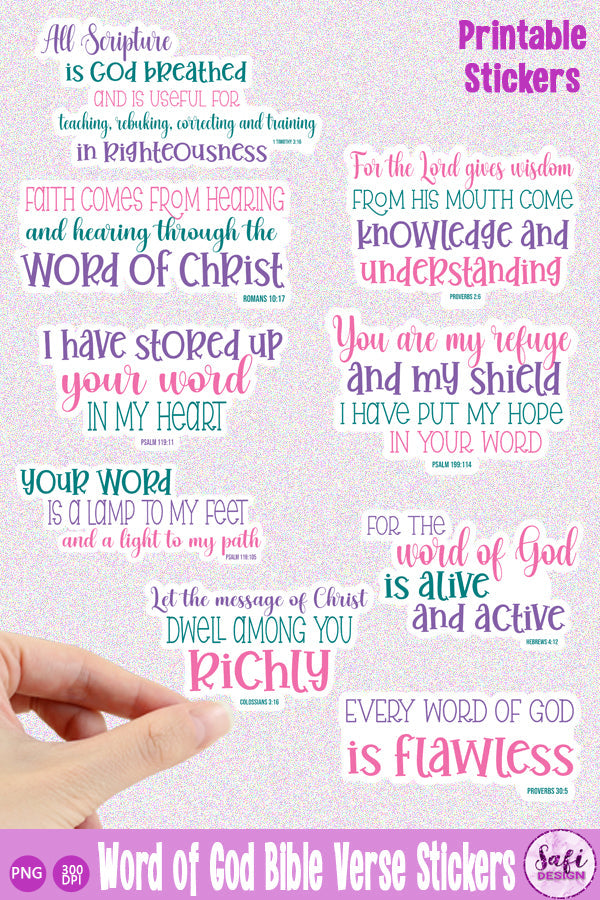 All Scripture
is God breathed
and is useful for
teaching, rebuking, correcting and training
1 Timothy 3:16
in righteousness
Printable
Stickers
Faith comes from hearing
and hearing through the
word of Christ
Romans 10:17
For the Lord gives wisdom
from his mouth come
knowledge and
understanding
Proverbs 2:6
I have stored up
your word
in my heart
Psalm 119:11
You are my refuge
and my shield
I have put my hope
in your word
Psalm 199:114
Your word
is a lamp to my feet
and a light to my path
Psalm 119:105
For the
word of God
is alive
and active
Hebrews 4:12
Let the message of Christ
dwell among you
richly
Colossians 3:16
Every word of God
is flawless
Proverbs 30:5
PNG
300
DPI
Word of God Bible Verse Stickers
Safi
DESIGN